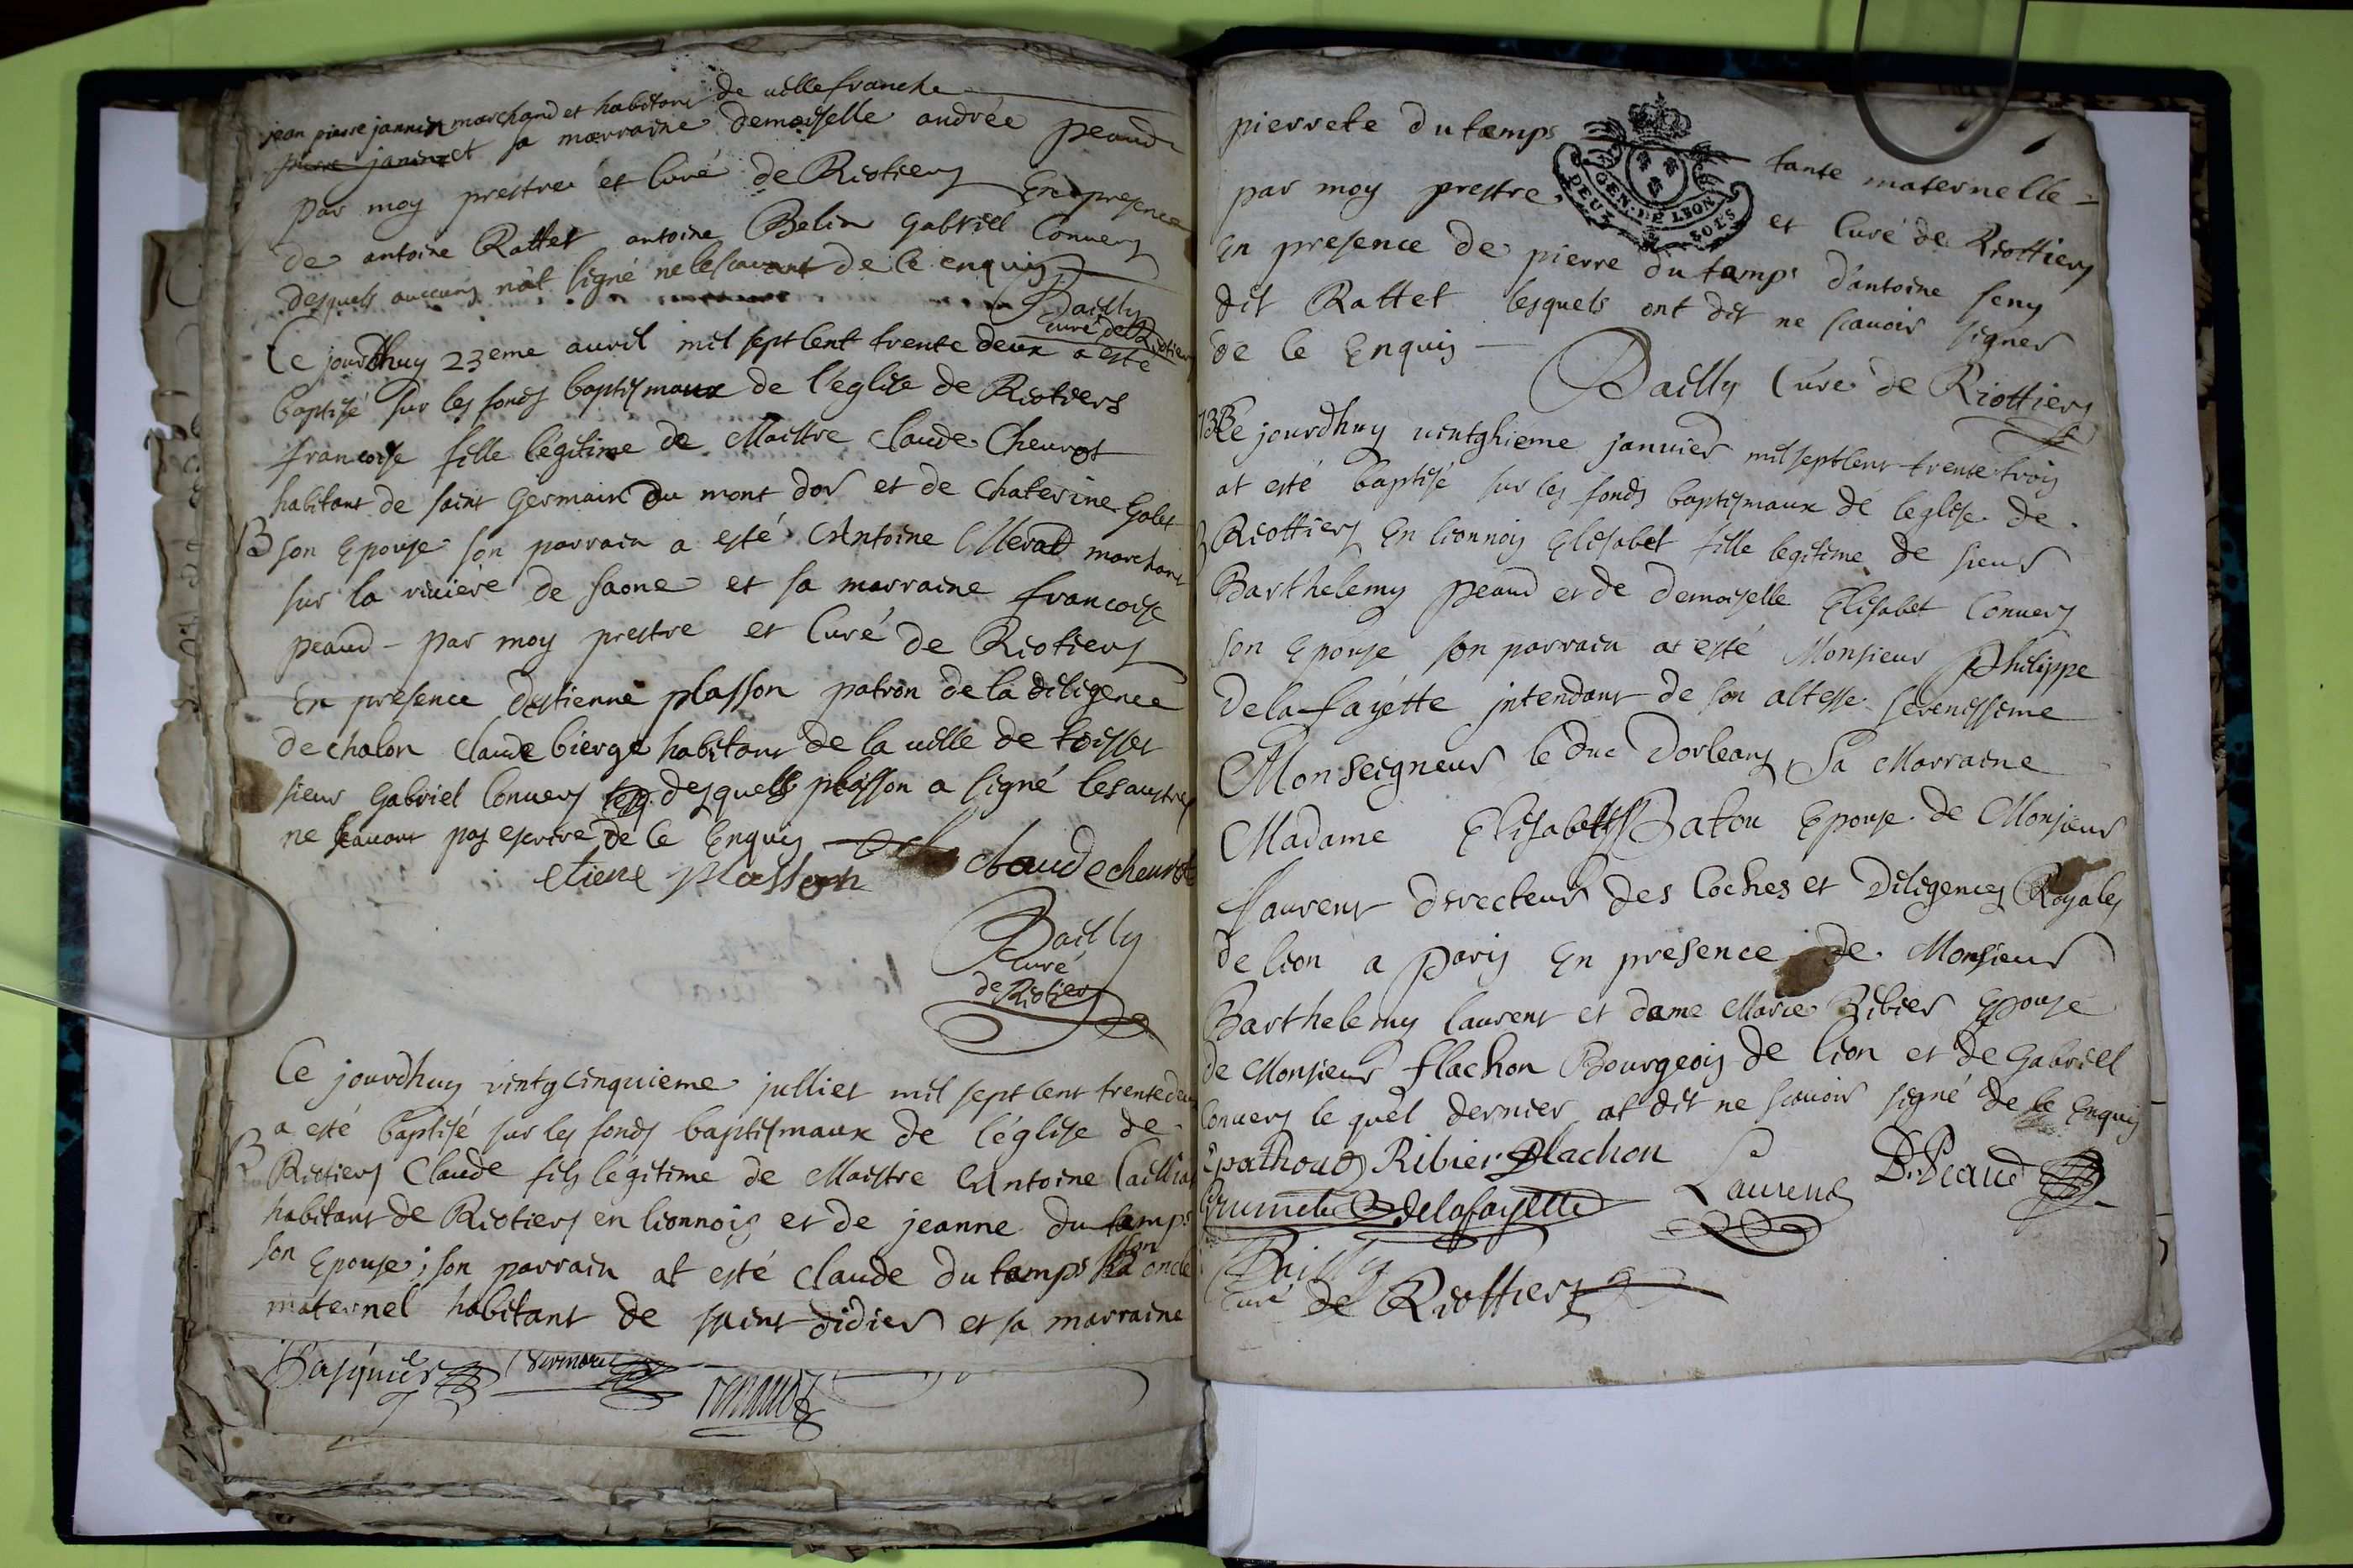 jean pierre jannin marchand et habitant de villefranche
pierre janin et sa marraine demoiselle andrée peaud
par moy prestre et curé de Riotiers En presence
de antoine Rattet antoine Belin gabriel Convers
desquels aucuns n'at signé ne le scavant de ce enquis
Bailly
curé de Riotiers
Ce jourdhuy 23eme avril mil sept cent trente deux a esté
baptisé sur les fonds baptismaux de l'eglise de Riotiers
francoise fille légitime de Maistre Claude Chevrot
habitant de saint Germain du mont dor et de Chaterine Golet
B son Epouse son parrain a esté Antoine marchand
sur la riviere de saone et sa marraine francoise
peaud - par moy prestre et Curé de Riotiers
En presence destienne plasson patron de la diligence
de chalon Claude bierge habitant de la ville de toissei
sieur Gabriel Convers desquels plasson a signé les austres
ne scavant pas escrire de ce Enquis
etiene plasson claude chevrot
Bailly
curé
de Riotiers
Ce jourdhuy vintgcinquieme julliet mil sept cent trente deux
a esté baptisé sur les fonds baptismaux de l'église de
B Riotiers Claude fils légitime de Maistre Antoine
habitant de Riotiers en lionnois et de jeanne du tamps
son Epouse; son parrain at esté claude du tamps son oncle
maternel habitant de saint didier et sa marraine
Basquier
renaud
pierrete du tamps tante maternelle
GEN. DE LEON
DEUX SOLS
par moy prestre et Curé de Riottiers
En presence de pierre du tamps d'antoine seny
dit Rattet lesquels ont dit ne scavoir signer
de ce Enquis
Bailly Curé de Riottiers
Ce jourdhuy vintghieme janvier mil sept cent trente trois
at esté baptisé sur les fonds baptismaux de léglise de
B Riottiers En lionnois Elisabet fille legitime de sieur
Barthelemy peaud et de demoiselle Elisabet Convers
son Epouse son parrain at esté Monsieur Philippe
Delafayette intendant de son altesse serenissime
Monseigneur le duc Dorleans, Sa Marraine
Madame Elisabet Batou Epouse de Monsieur
laurent directeur des Coches et Diligences Royales
de lion a paris En presence de Monsieur
Barthelemy laurent et dame Marie Ribier Epouse
de Monsieur flachon Bourgeois de lion et de Gabriel
Convers le quel dernier at dit ne scavoir signé de ce Enquis
Ribier flachon
delafayette Laurend B. Peaud
Bailly
curé de Riottiers